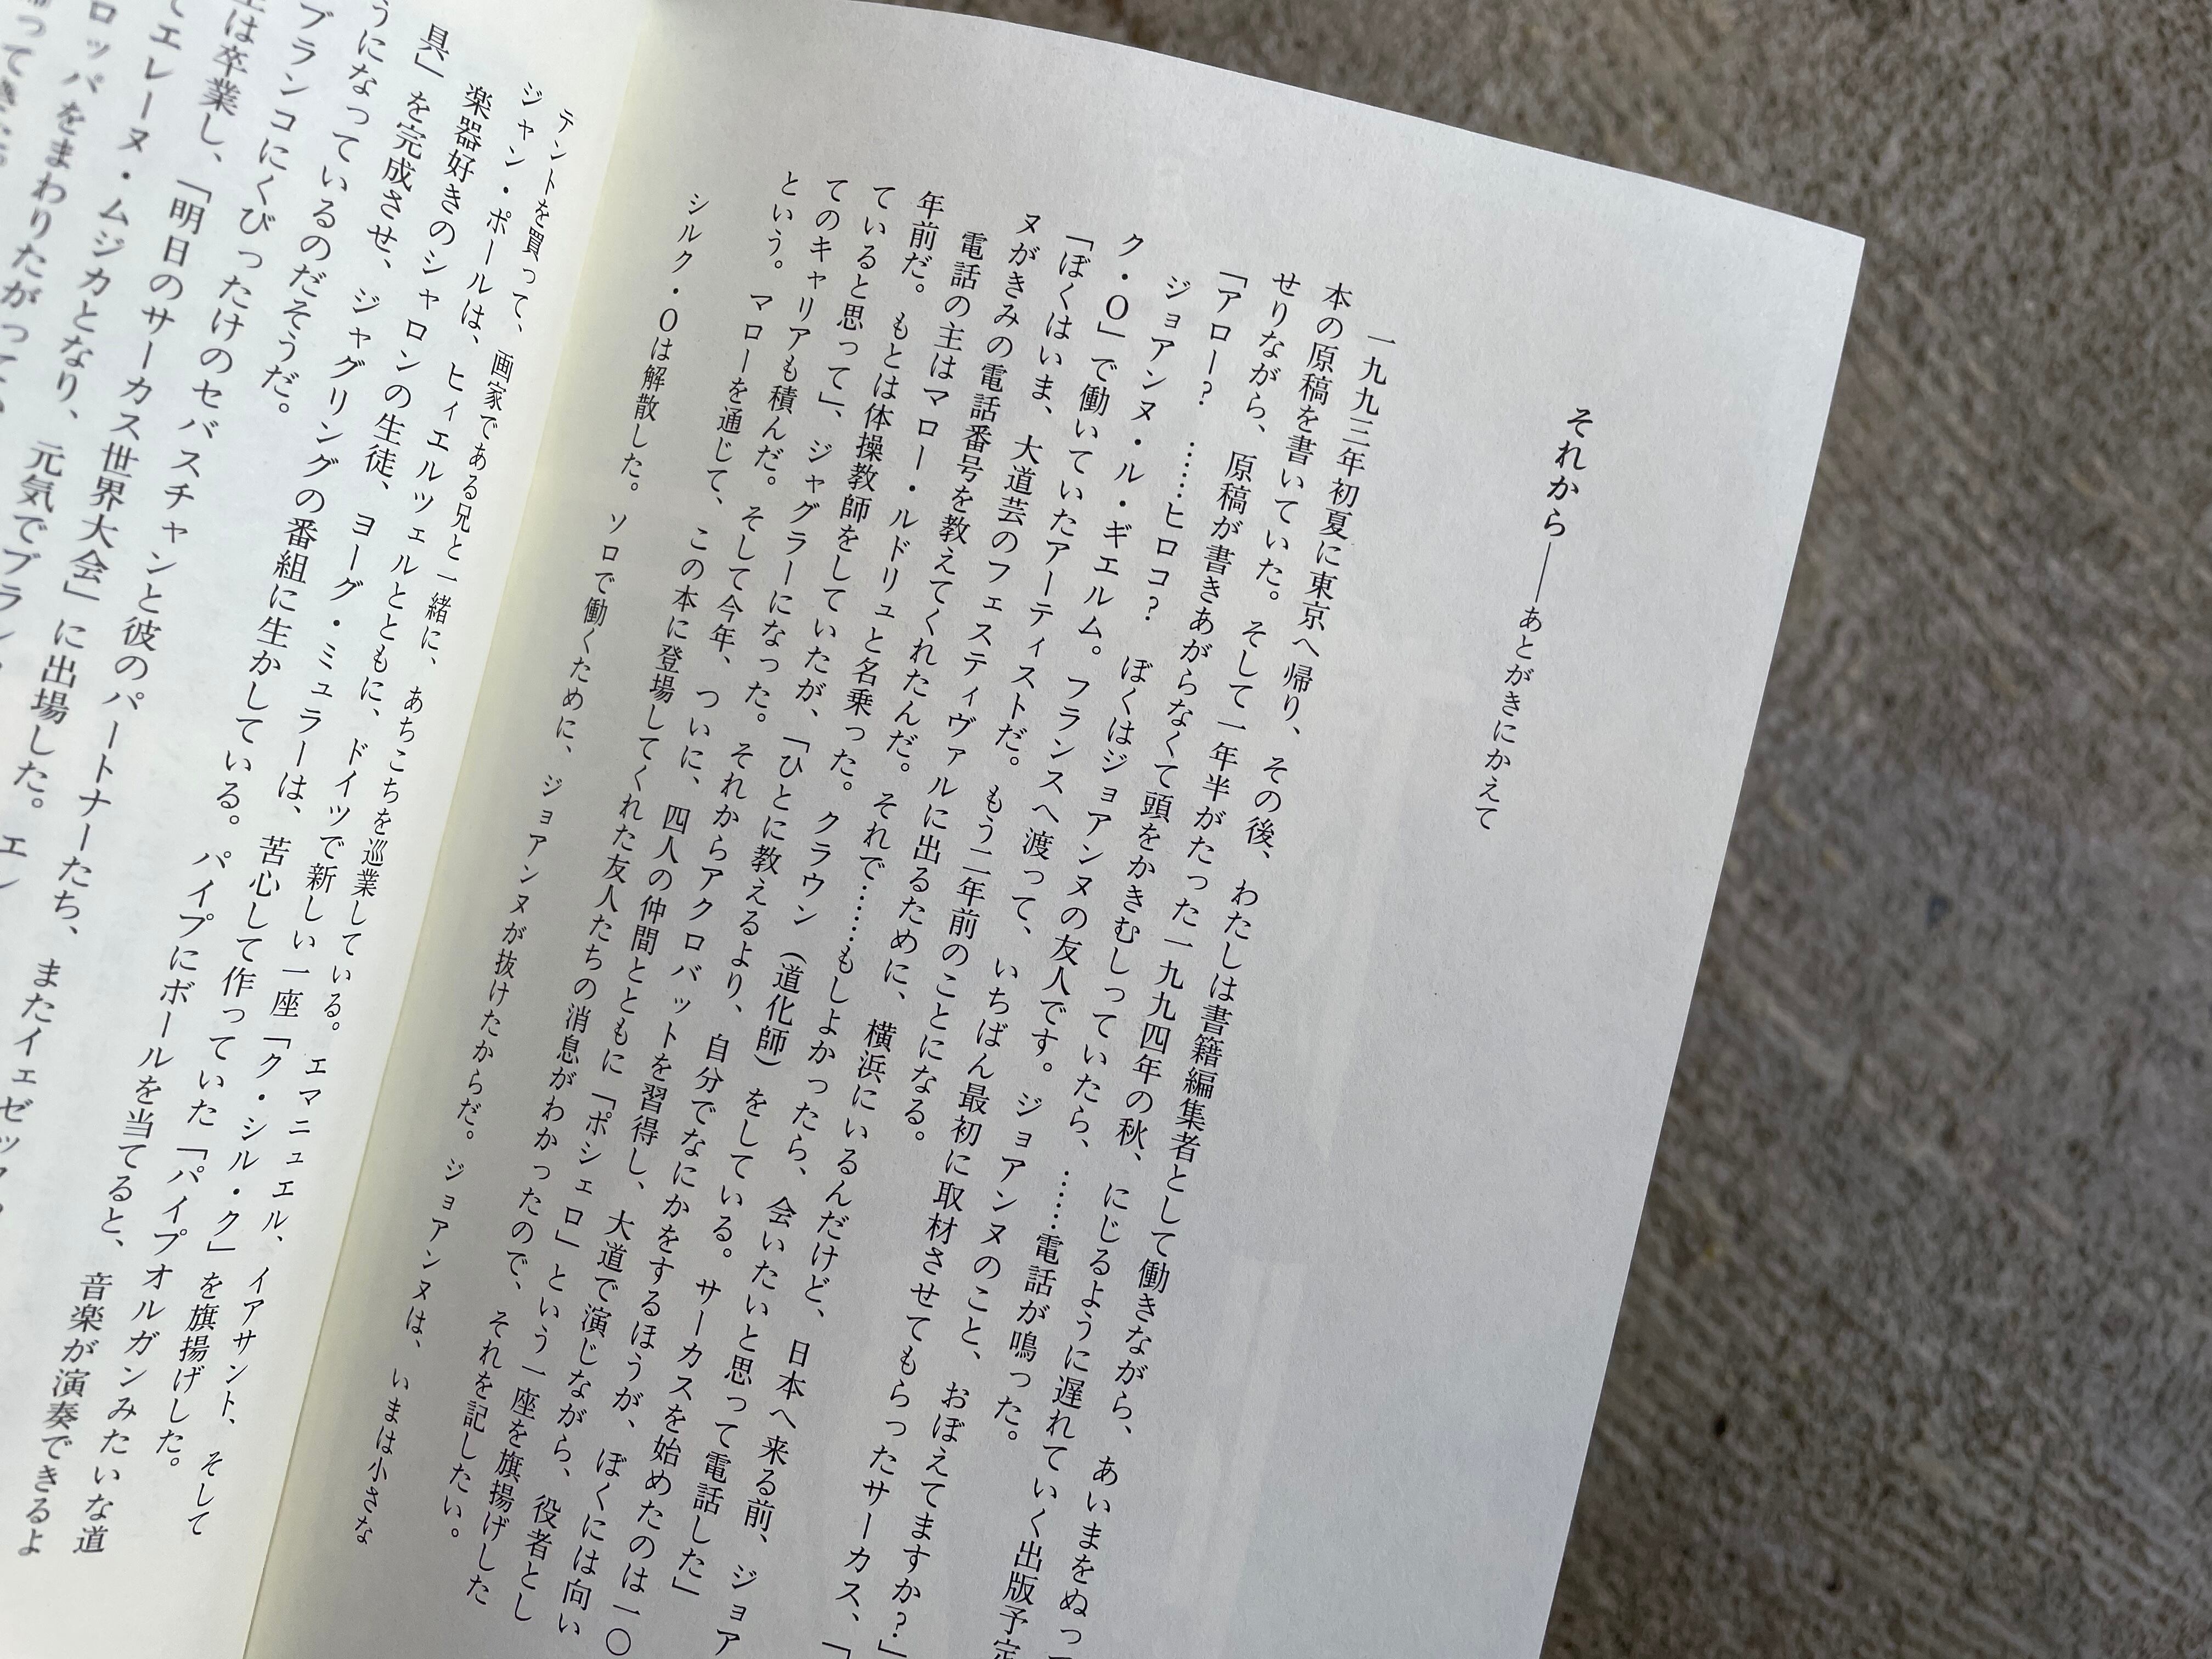 それから——あとがきにかえて
一九九三年初夏に東京へ帰り、その後、わたしは書籍編集者として働きながら、あいまをぬっ
本の原稿を書いていた。そして一年半がたった一九九四年の秋、にじるように遅れていく出版予定
せりながら、原稿が書きあがらなくて頭をかきむしっていたら、……電話が鳴った。
「アロー? ……ヒロコ? ぼくはジョアンヌの友人です。ジョアンヌのこと、おぼえてますか?」
ジョアンヌ・ル・ギエルム。フランスへ渡って、いちばん最初に取材させてもらったサーカス、「
ク・O」で働いていたアーティストだ。もう二年前のことになる。
「ぼくはいま、大道芸のフェスティヴァルに出るために、横浜にいるんだけど、日本へ来る前、ジョア
ヌがきみの電話番号を教えてくれたんだ。それで……もしよかったら、会いたいと思って電話した」
電話の主はマロー・ルドリュと名乗った。クラウン(道化師)をしている。サーカスを始めたのは一〇
年前だ。もとは体操教師をしていたが、「ひとに教えるより、自分でなにかをするほうが、ぼくには向い
ていると思って」、ジャグラーになった。それからアクロバットを習得し、大道で演じながら、役者とし
てのキャリアも積んだ。そして今年、ついに、四人の仲間とともに「ポシェロ」という一座を旗揚げした
という。マローを通じて、この本に登場してくれた友人たちの消息がわかったので、それを記したい。
シルク・Oは解散した。ソロで働くために、ジョアンヌが抜けたからだ。ジョアンヌは、いまは小さな
テントを買って、画家である兄と一緒に、あちこちを巡業している。エマニュエル、イアサント、そして
ジャン・ポールは、ヒィエルツェルとともに、ドイツで新しい一座「ク・シル・ク」を旗揚げした。
楽器好きのシャロンの生徒、ヨーグ・ミュラーは、苦心して作っていた「パイプオルガンみたいな道
具」を完成させ、ジャグリングの番組に生かしている。パイプにボールを当てると、音楽が演奏できるよ
うになっているのだそうだ。
ブランコにくびったけのセバスチャンと彼のパートナーたち、またイェゼッ
は卒業し、「明日のサーカス世界大会」に出場した。エン
てエレーヌ・ムジカとなり、元気でブラン
ロッパをまわりたがって